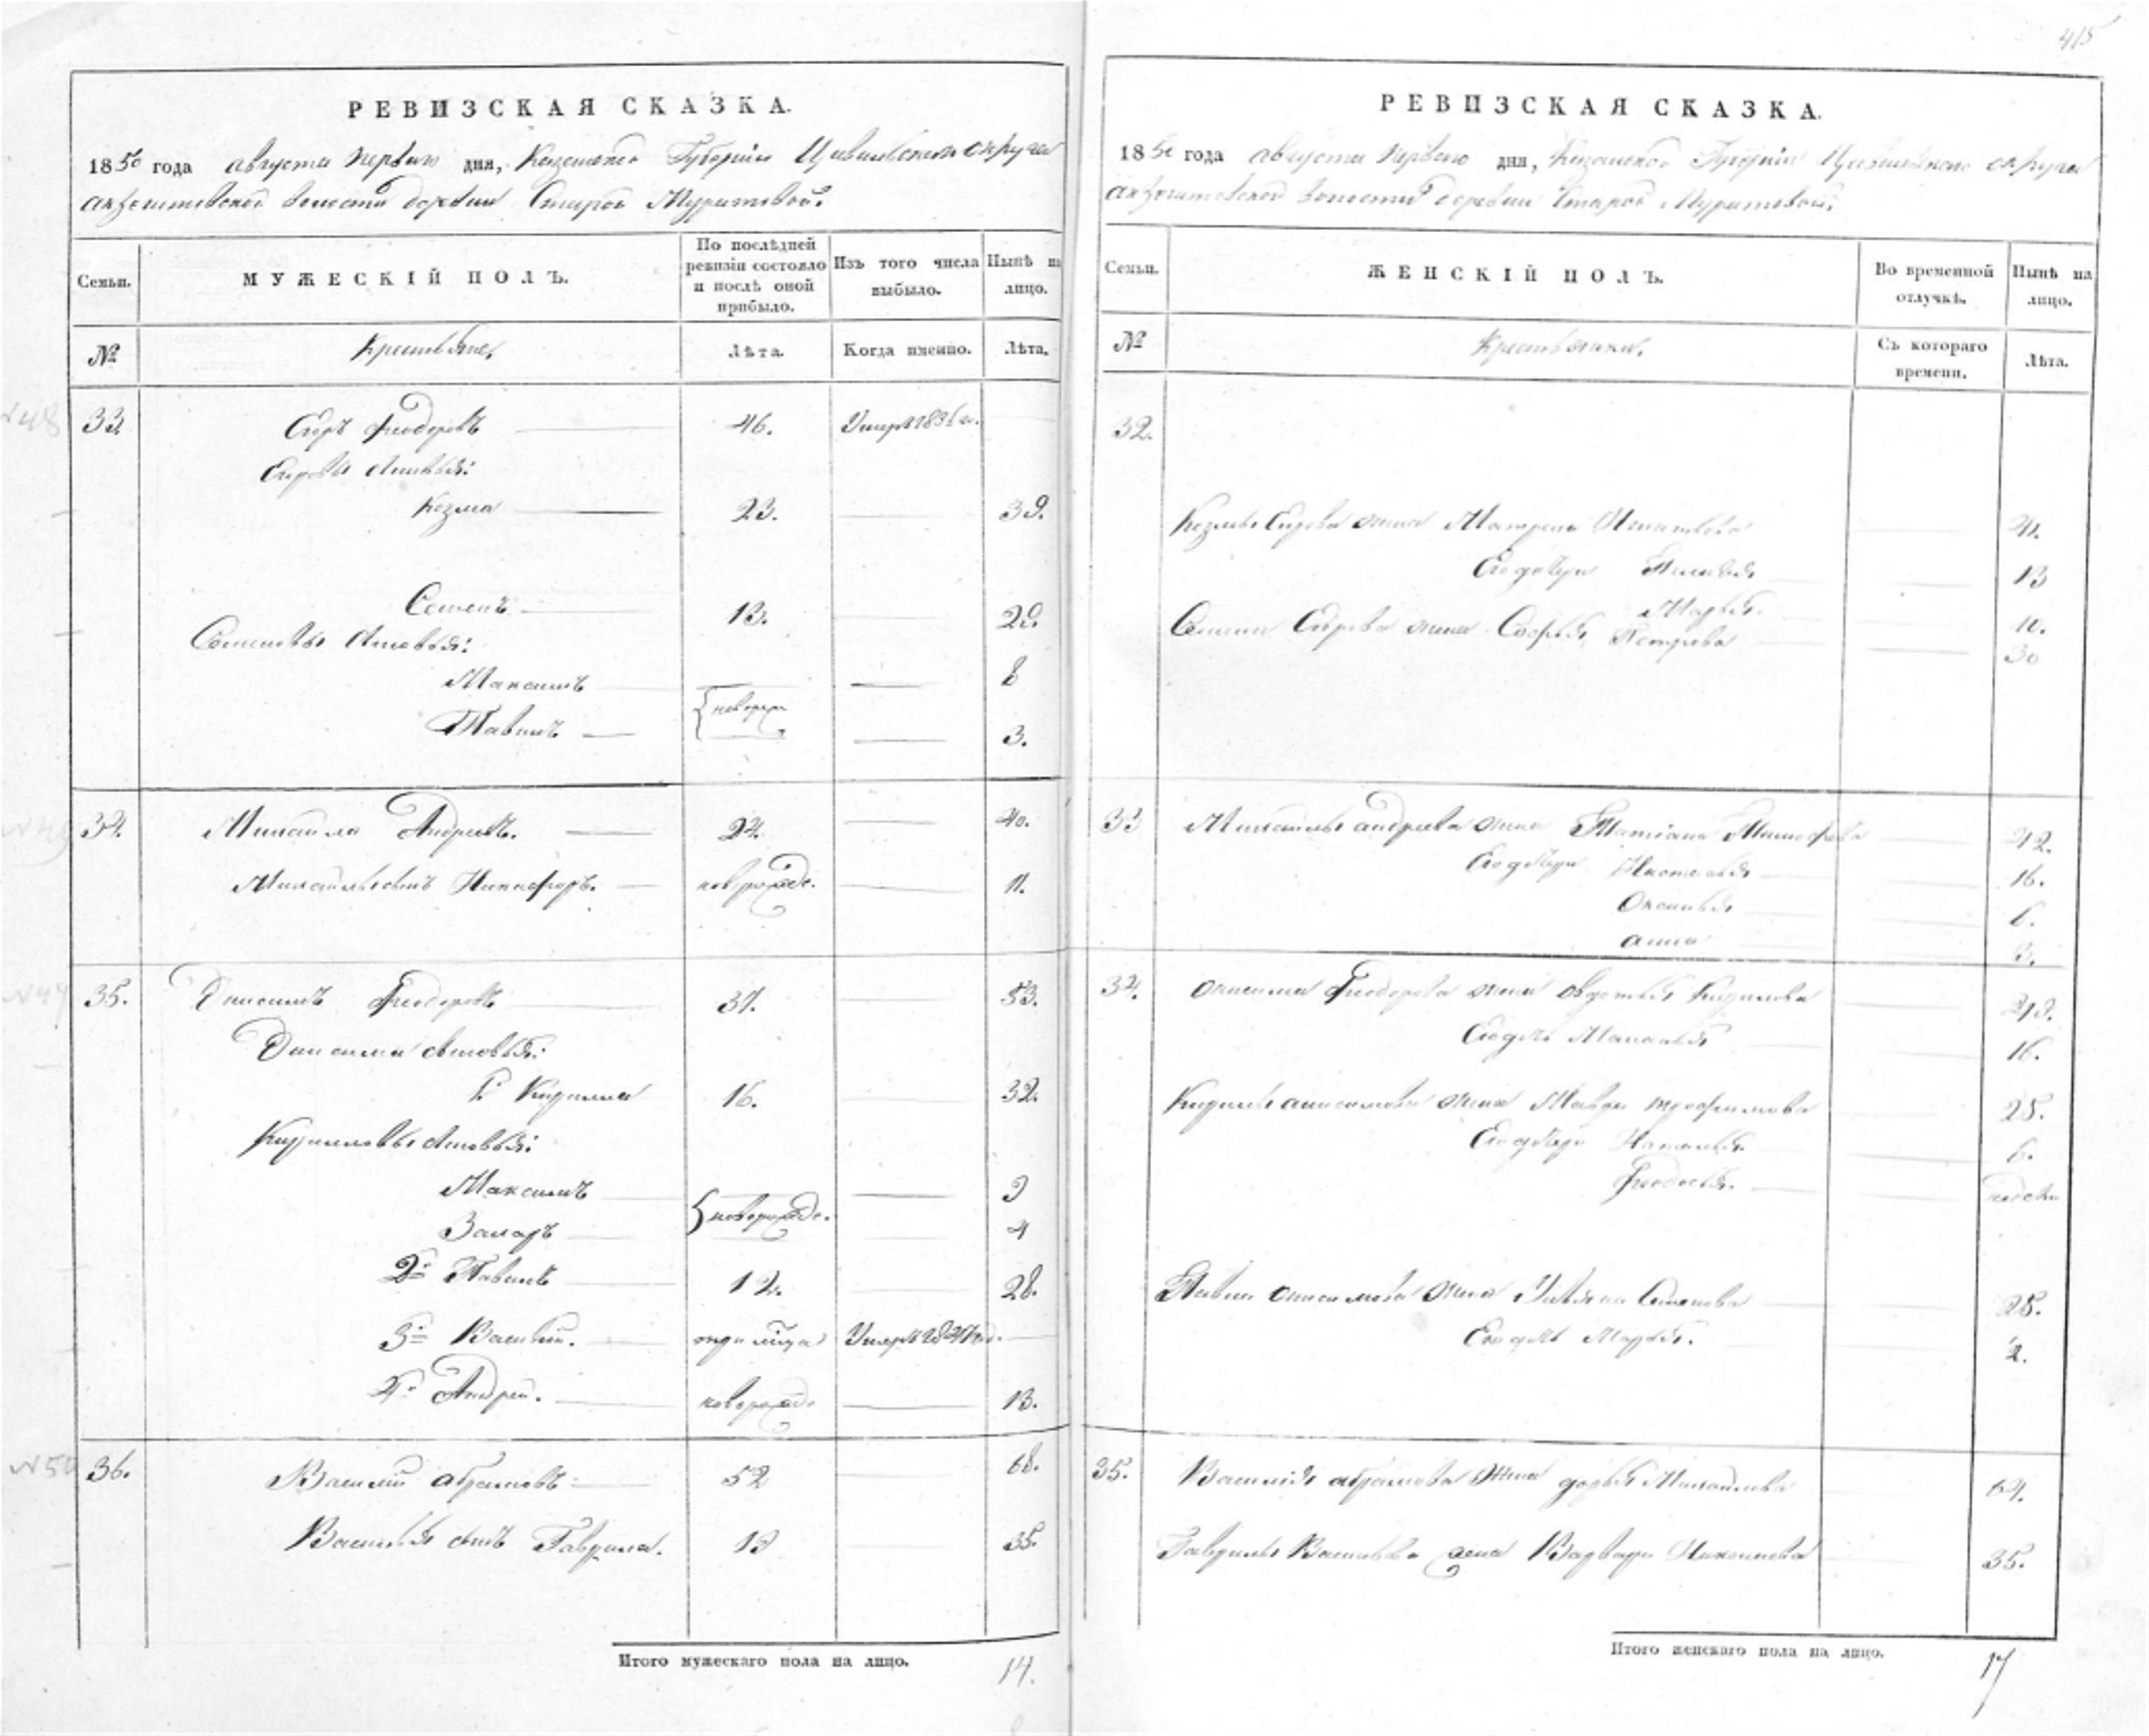 415
РЕВИЗСКАЯ СКАЗКА.
1850 года августа первого дня, Казанской Губернии Цивильского округа
волости деревни Старой Муратовой.
Семьи.
МУЖЕСКІЙ ПОЛЪ.
По послѣдней ревизіи состояло и послѣ оной прибыло.
Изъ того числа выбыло.
Нынѣ на лицо.
№
Крестьяне.
Лѣта.
Когда именно.
Лѣта.
№48 33. Егоръ Феодоровъ 46. Умеръ
Егоровы сыновья:
Козма 23. 39.
Семенъ 13. 29.
Семеновы сыновья:
Максимъ 8
новорож
Павелъ 3.
№49 34. Михайла Андреевъ. 24. 40.
Михайлы сынъ Никифоръ. новорожде. 11.
35. Онисимъ Феодоровъ 37. 53.
Онисима сыновья:
1й Кирилла 16. 32.
Кирилловы сыновья:
Максимъ 9
новорожде.
Захаръ 4
2й Павелъ 12. 28.
3й Василий. Умеръ
4й Андрей. новорожд. 13.
№50 36. Василий Абрамовъ 52 68.
Василья сынъ Гаврила. 19 35.
Итого мужескаго пола на лицо. 14.
РЕВИЗСКАЯ СКАЗКА.
1850 года августа первого дня, Казанской Губернии Цивильского округа
волости деревни Старой Муратовой.
Семьи.
ЖЕНСКІЙ ПОЛЪ.
Во временной отлучкѣ.
Нынѣ на лицо.
№
Крестьянки.
Съ котораго времени.
Лѣта.
32.
Козмы Егорова жена Матрена Игнатьева 41.
Его дочери Пелагея 13
Марья 11.
Семена Егорова жена Софья Петрова 30
33 Михайлы Андреева жена Татіана Тимофеева 42.
Его дочери Настасья 16.
Оксинья 6.
Анна 3.
34. Онисима Феодорова жена Овдотья Кирилова
Его дочь Маланья 16.
Кирилы Анисимова жена Мавра Трофимова 28.
Его дочери Наталья 6.
Феодосья.
Павла Онисимова жена Ульяна Семенова 28.
Его дочь Марья. 2.
35. Василья Абрамова жена Дарья Михайлова 64.
Гаврилы Васильева жена Варвара 35.
Итого женскаго пола на лицо. 17